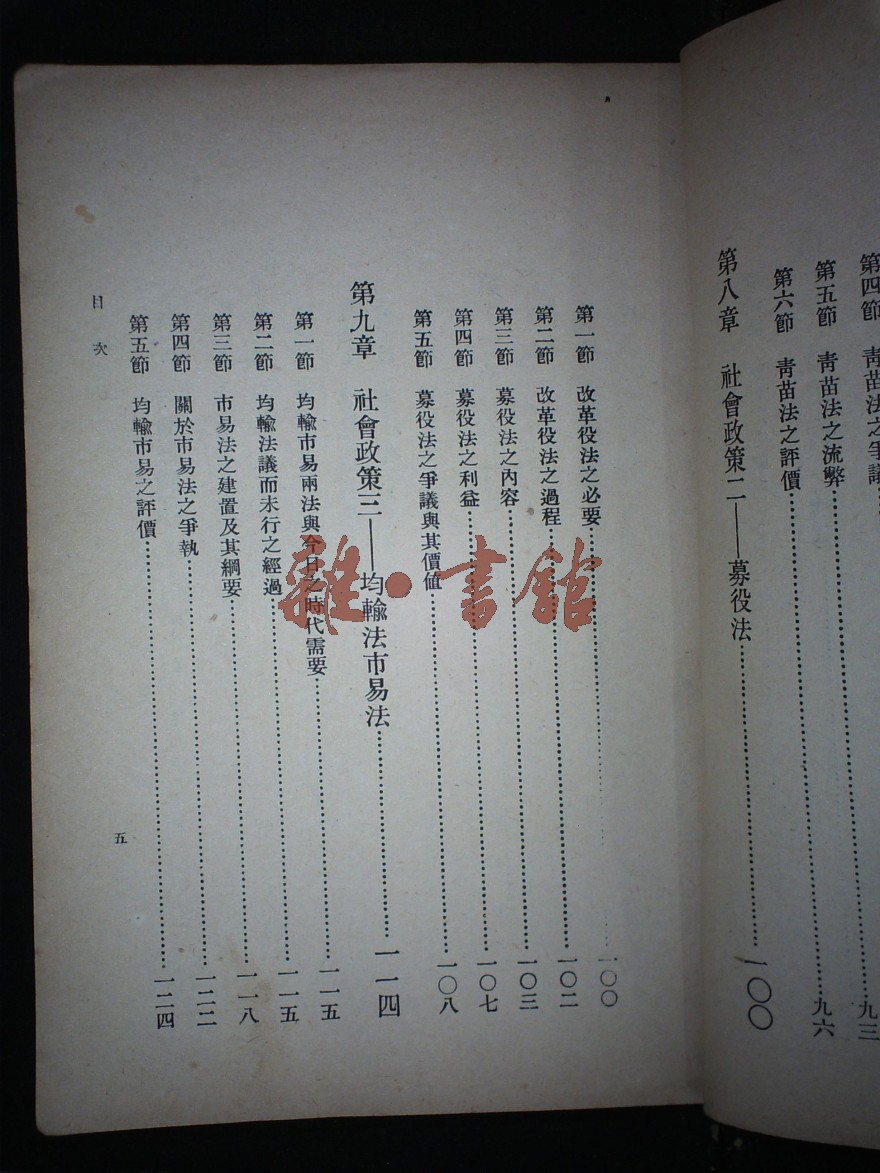 第四節 靑苗法之爭議……九三
第五節 靑苗法之流弊……九六
第六節 靑苗法之評價……
第八章 社會政策二——募役法……一〇〇
第一節 改革役法之必要……一〇〇
第二節 改革役法之過程……一〇二
第三節 募役法之內容……一〇三
第四節 募役法之利益……一〇七
第五節 募役法之爭議與其價值……一〇八
第九章 社會政策三——均輸法市易法……一一四
第一節 均輸市易兩法與今日之時代需要……一一五
第二節 均輸法議而未行之經過……一一五
第三節 市易法之建置及其綱要……一一八
第四節 關於市易法之爭執……一二二
第五節 均輸市易之評價……一二四
目次
五
雜·書館